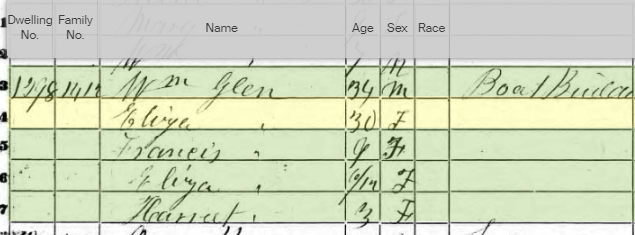 Dwelling No. Family No. Name Age Sex Race
3 1298 1412 Wm Glen 34 M Boat Build
4 Eliza " 30 F
5 Francis " 9 F
6 Eliza " 6/12 F
7 Harriet " 3 F